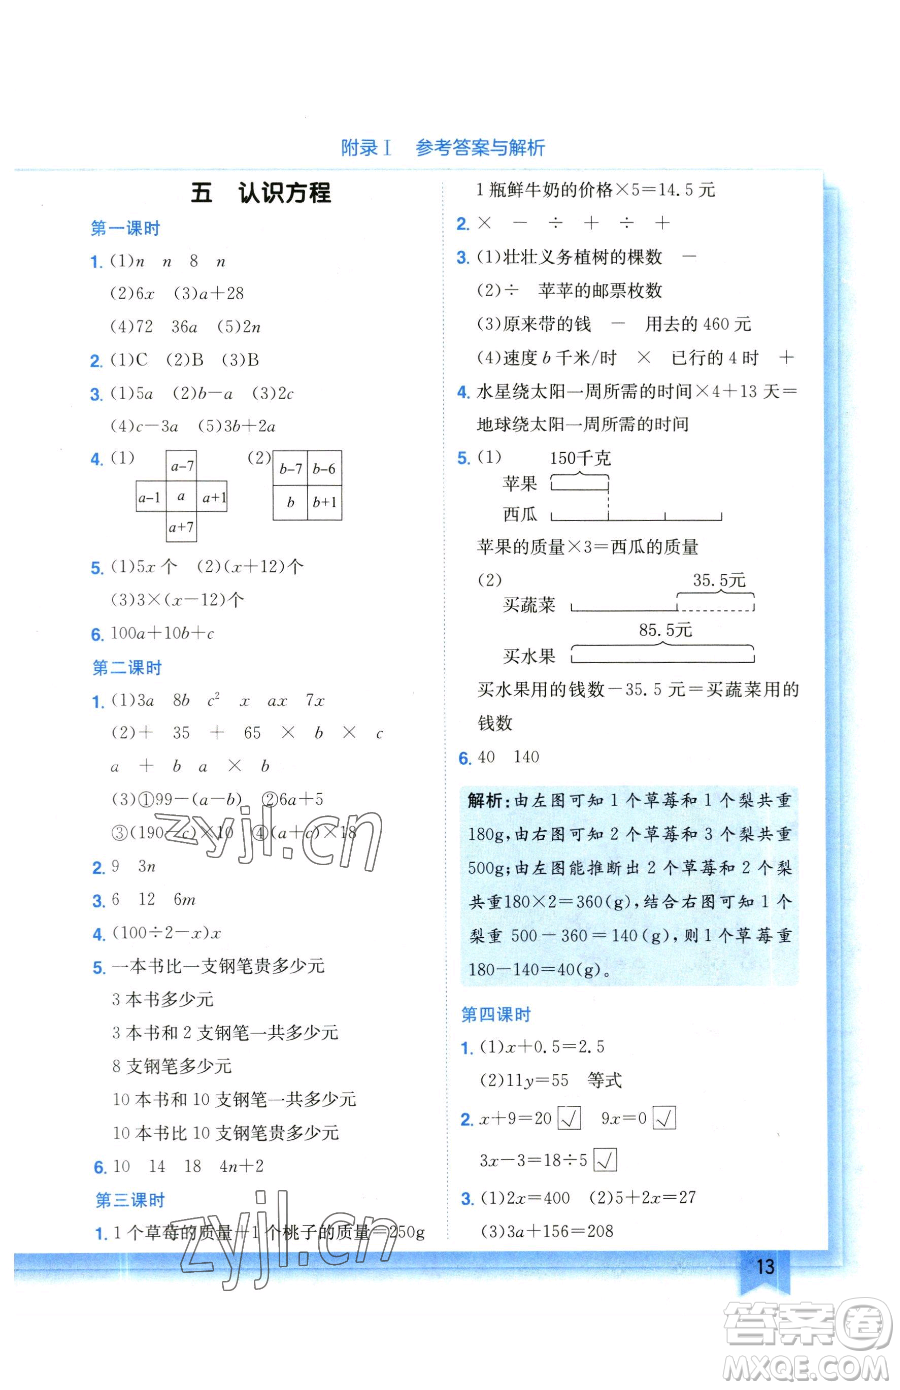 附录Ⅰ 参考答案与解析
五 认识方程
第一课时
1. (1)n n 8 n
(2)6x (3)a+28
(4)72 36a (5)2n
2. (1)C (2)B (3)B
3. (1)5a (2)b-a (3)2c
(4)c-3a (5)3b+2a
4. (1) (2)
a-7
a-1 a a+1
a+7
b-7 b-6
b b+1
5. (1)5x个 (2)(x+12)个
(3)3×(x-12)个
6. 100a+10b+c
第二课时
1. (1)3a 8b c² x ax 7x
(2)+ 35 + 65 × b × c
a + b a × b
(3)①99-(a-b) ②6a+5
③(190-c)×10 ④(a+c)×18
2. 9 3n
3. 6 12 6m
4. (100÷2-x)x
5. 一本书比一支钢笔贵多少元
3本书多少元
3本书和2支钢笔一共多少元
8支钢笔多少元
10本书和10支钢笔一共多少元
10本书比10支钢笔贵多少元
6. 10 14 18 4n+2
第三课时
1. 1个草莓的质量+1个桃子的质量=250g
1瓶鲜牛奶的价格×5=14.5元
2. × - ÷ + ÷ +
3. (1)壮壮义务植树的棵数 -
(2)÷ 苹苹的邮票枚数
(3)原来带的钱 - 用去的460元
(4)速度b千米/时 × 已行的4时 +
4. 水星绕太阳一周所需的时间×4+13天=
地球绕太阳一周所需的时间
5. (1) 150千克
苹果
西瓜
苹果的质量×3=西瓜的质量
(2) 35.5元
买蔬菜
85.5元
买水果
买水果用的钱数-35.5元=买蔬菜用的
钱数
6. 40 140
解析:由左图可知1个草莓和1个梨共重
180g,由右图可知2个草莓和3个梨共重
500g;由左图能推断出2个草莓和2个梨
共重180×2=360(g),结合右图可知1个
梨重500-360=140(g),则1个草莓重
180-140=40(g)。
第四课时
1. (1)x+0.5=2.5
(2)11y=55 等式
2. x+9=20 √ 9x=0 √
3x-3=18÷5 √
3. (1)2x=400 (2)5+2x=27
(3)3a+156=208
13
zyjl.cn
zyjl.cn
答案圈
MXQE.COM